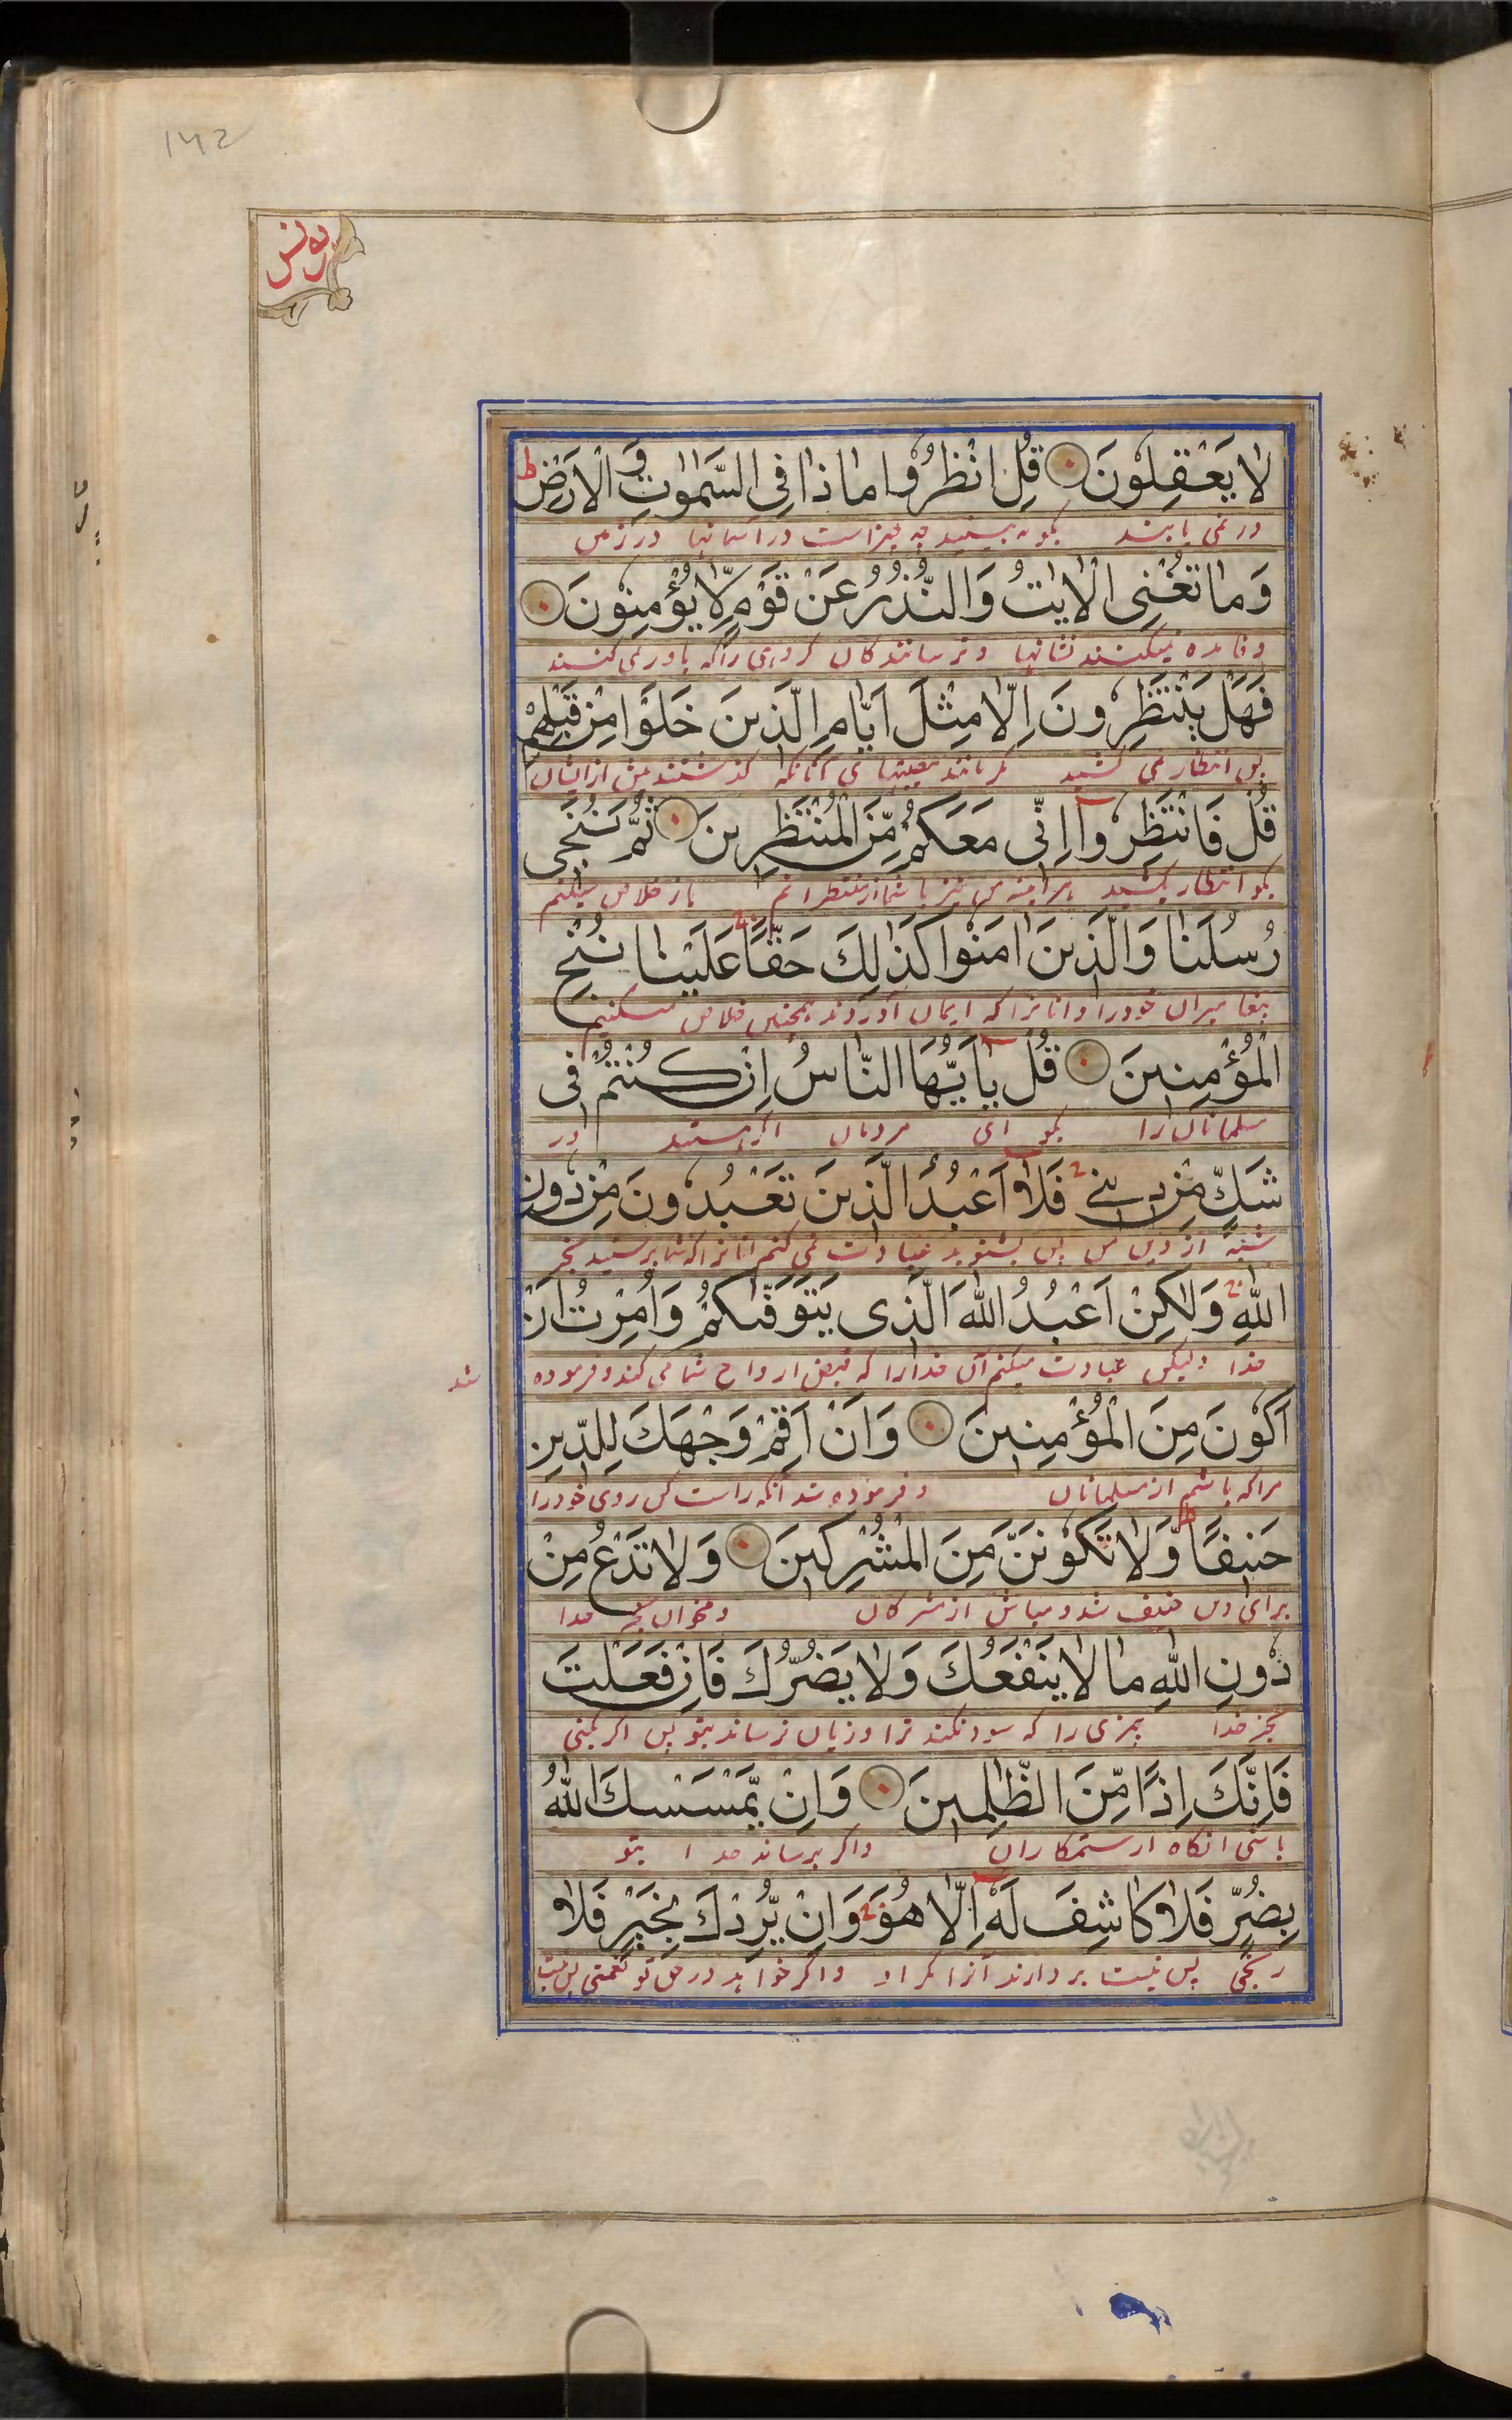 142
یونس
لَا یَعْقِلُوْنَ قُلِ انْظُرُوْا مَاذَا فِی السَّمٰوٰتِ وَ الْاَرْضِ ط
در نمی یابند بگو به بینید چه چیز است در آسمانها و در زمین
وَمَا تُغْنِی الْاٰیٰتُ وَالنُّذُرُ عَنْ قَوْمٍ لَّا یُؤْمِنُوْنَ
و فایده نمیکنند نشانها و ترسانندکان کروهی را که باور نمی کنند
فَهَلْ یَنْتَظِرُوْنَ اِلَّا مِثْلَ اَیَّامِ الَّذِیْنَ خَلَوْا مِنْ قَبْلِهِمْ
پس انتظار نمی کشید مکر مانند آنانکه کذشتند پیش از ایشان
قُلْ فَانْتَظِرُوْا اِنِّی مَعَكُمْ مِّنَ الْمُنْتَظِرِیْنَ ثُمَّ نُنَجِّی
بکو انتظار بکشید هر آینه من نیز با شما از منتظرانم باز خلاص میکنم
رُسُلَنَا وَالَّذِیْنَ اٰمَنُوْا كَذٰلِكَ حَقًّا عَلَیْنَا نُنْجِ
پیغامبران خود را و آنانرا که ایمان آوردند همچنین خلاص میکنیم
الْمُؤْمِنِیْنَ قُلْ یٰاَیُّهَا النَّاسُ اِنْ كُنْتُمْ فِی
مسلمانان را بکو ای مردمان اکر هستید در
شَكٍّ مِّنْ دِیْنِیْ فَلَا اَعْبُدُ الَّذِیْنَ تَعْبُدُوْنَ مِنْ دُوْنِ
شبهه از دین من پس بشنوید عبادت نمی کنم آنانرا که شما پرستید بجز
اللّٰهِ وَلٰكِنْ اَعْبُدُ اللّٰهَ الَّذِی یَتَوَفّٰىكُمْ وَاُمِرْتُ اَنْ
خدا ولیکن عبادت میکنم آن خدا را که قبض ارواح شما می کند و فرموده شد
اَكُوْنَ مِنَ الْمُؤْمِنِیْنَ وَاَنْ اَقِمْ وَجْهَكَ لِلدِّیْنِ
مرا که باشم از مسلمانان و فرموده شد آنکه راست کن روی خود را
حَنِیْفًا وَّلَا تَكُوْنَنَّ مِنَ الْمُشْرِكِیْنَ وَلَا تَدْعُ مِنْ
برای دین حنیف شده و مباش از مشرکان و مخوان بجز خدا
دُوْنِ اللّٰهِ مَا لَا یَنْفَعُكَ وَلَا یَضُرُّكَ فَاِنْ فَعَلْتَ
بجز خدا چیزی را که سود نکند ترا و زیان نرساند بتو پس اکر بکنی
فَاِنَّكَ اِذًا مِّنَ الظّٰلِمِیْنَ وَاِنْ یَّمْسَسْكَ اللّٰهُ
باشی آنکاه از ستمکاران و اکر برساند خدا بتو
بِضُرٍّ فَلَا كَاشِفَ لَهٗ اِلَّا هُوَ وَاِنْ یُّرِدْكَ بِخَیْرٍ فَلَا
رنجی پس نیست بردارنده آنرا مکر او و اکر خواهد در حق تو نعمتی پس نیست